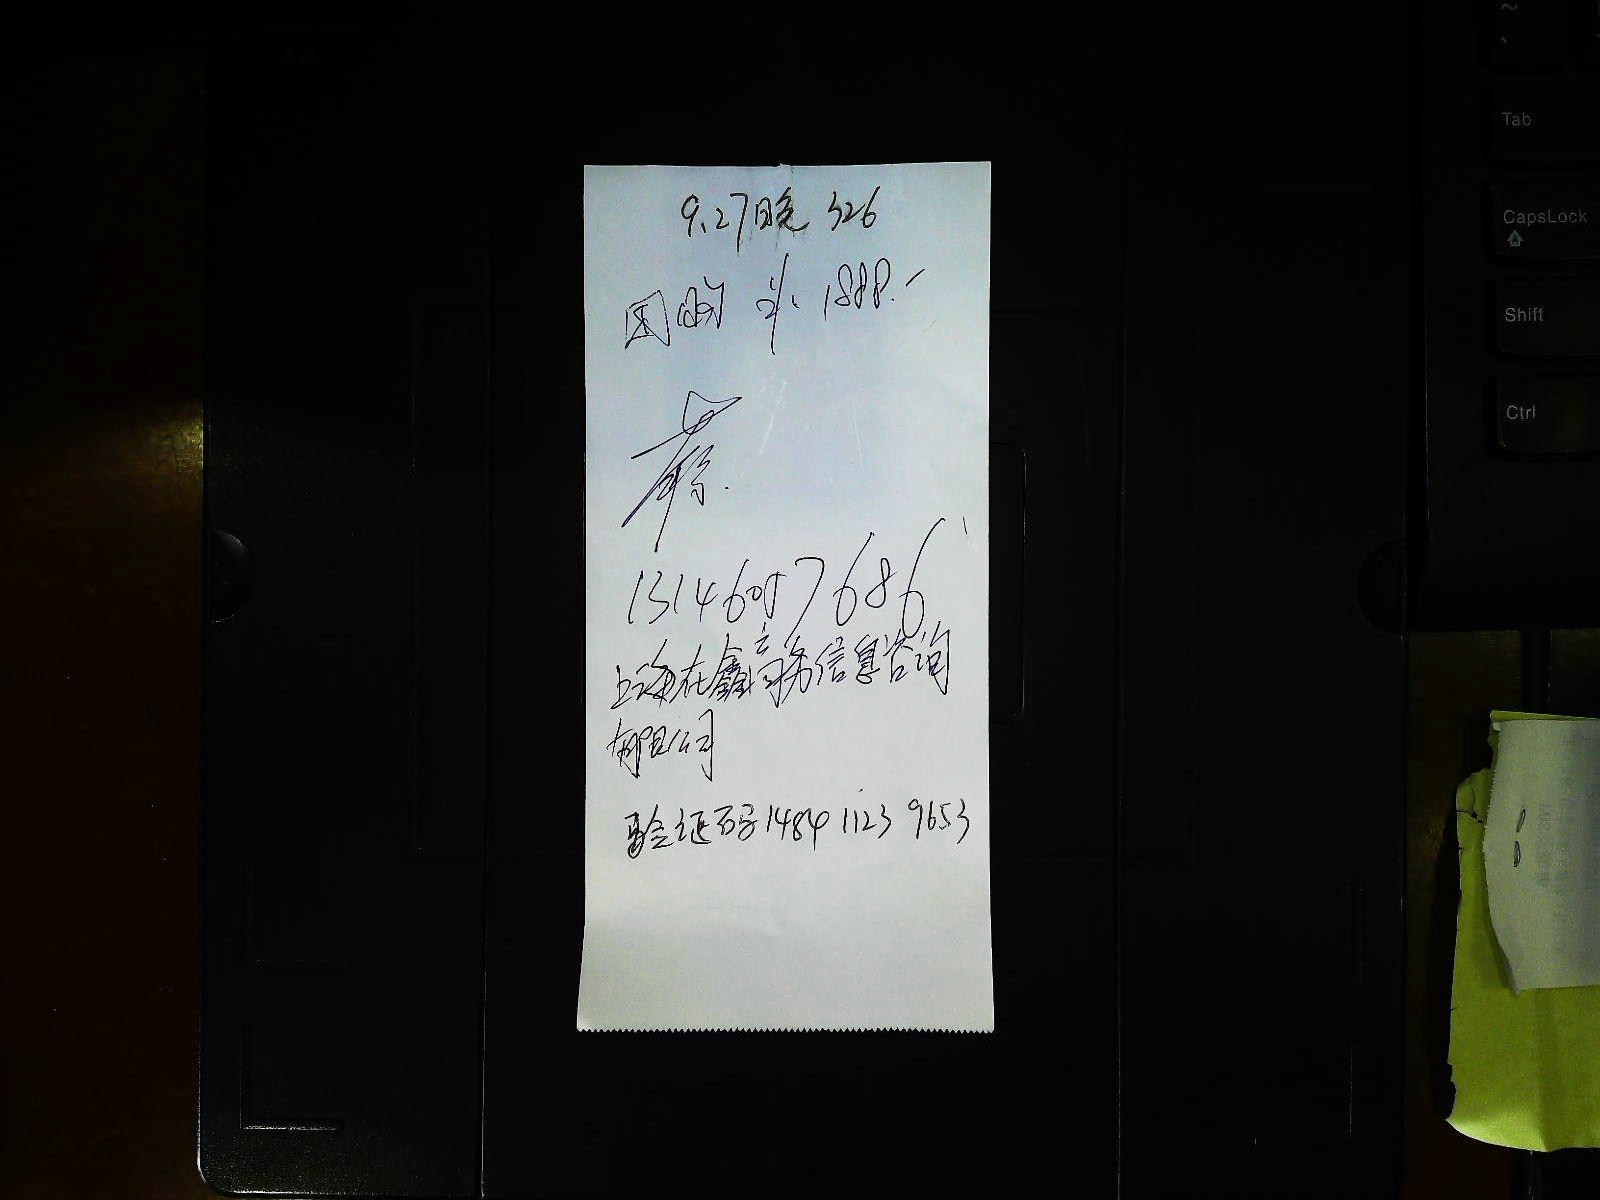 9.27晚 326
团购 ¥:1888.-
蔡
13146057686
上海在鑫商务信息咨询
有限公司
验证码1484 1123 9653
~
`
Tab
CapsLock
Shift
Ctrl